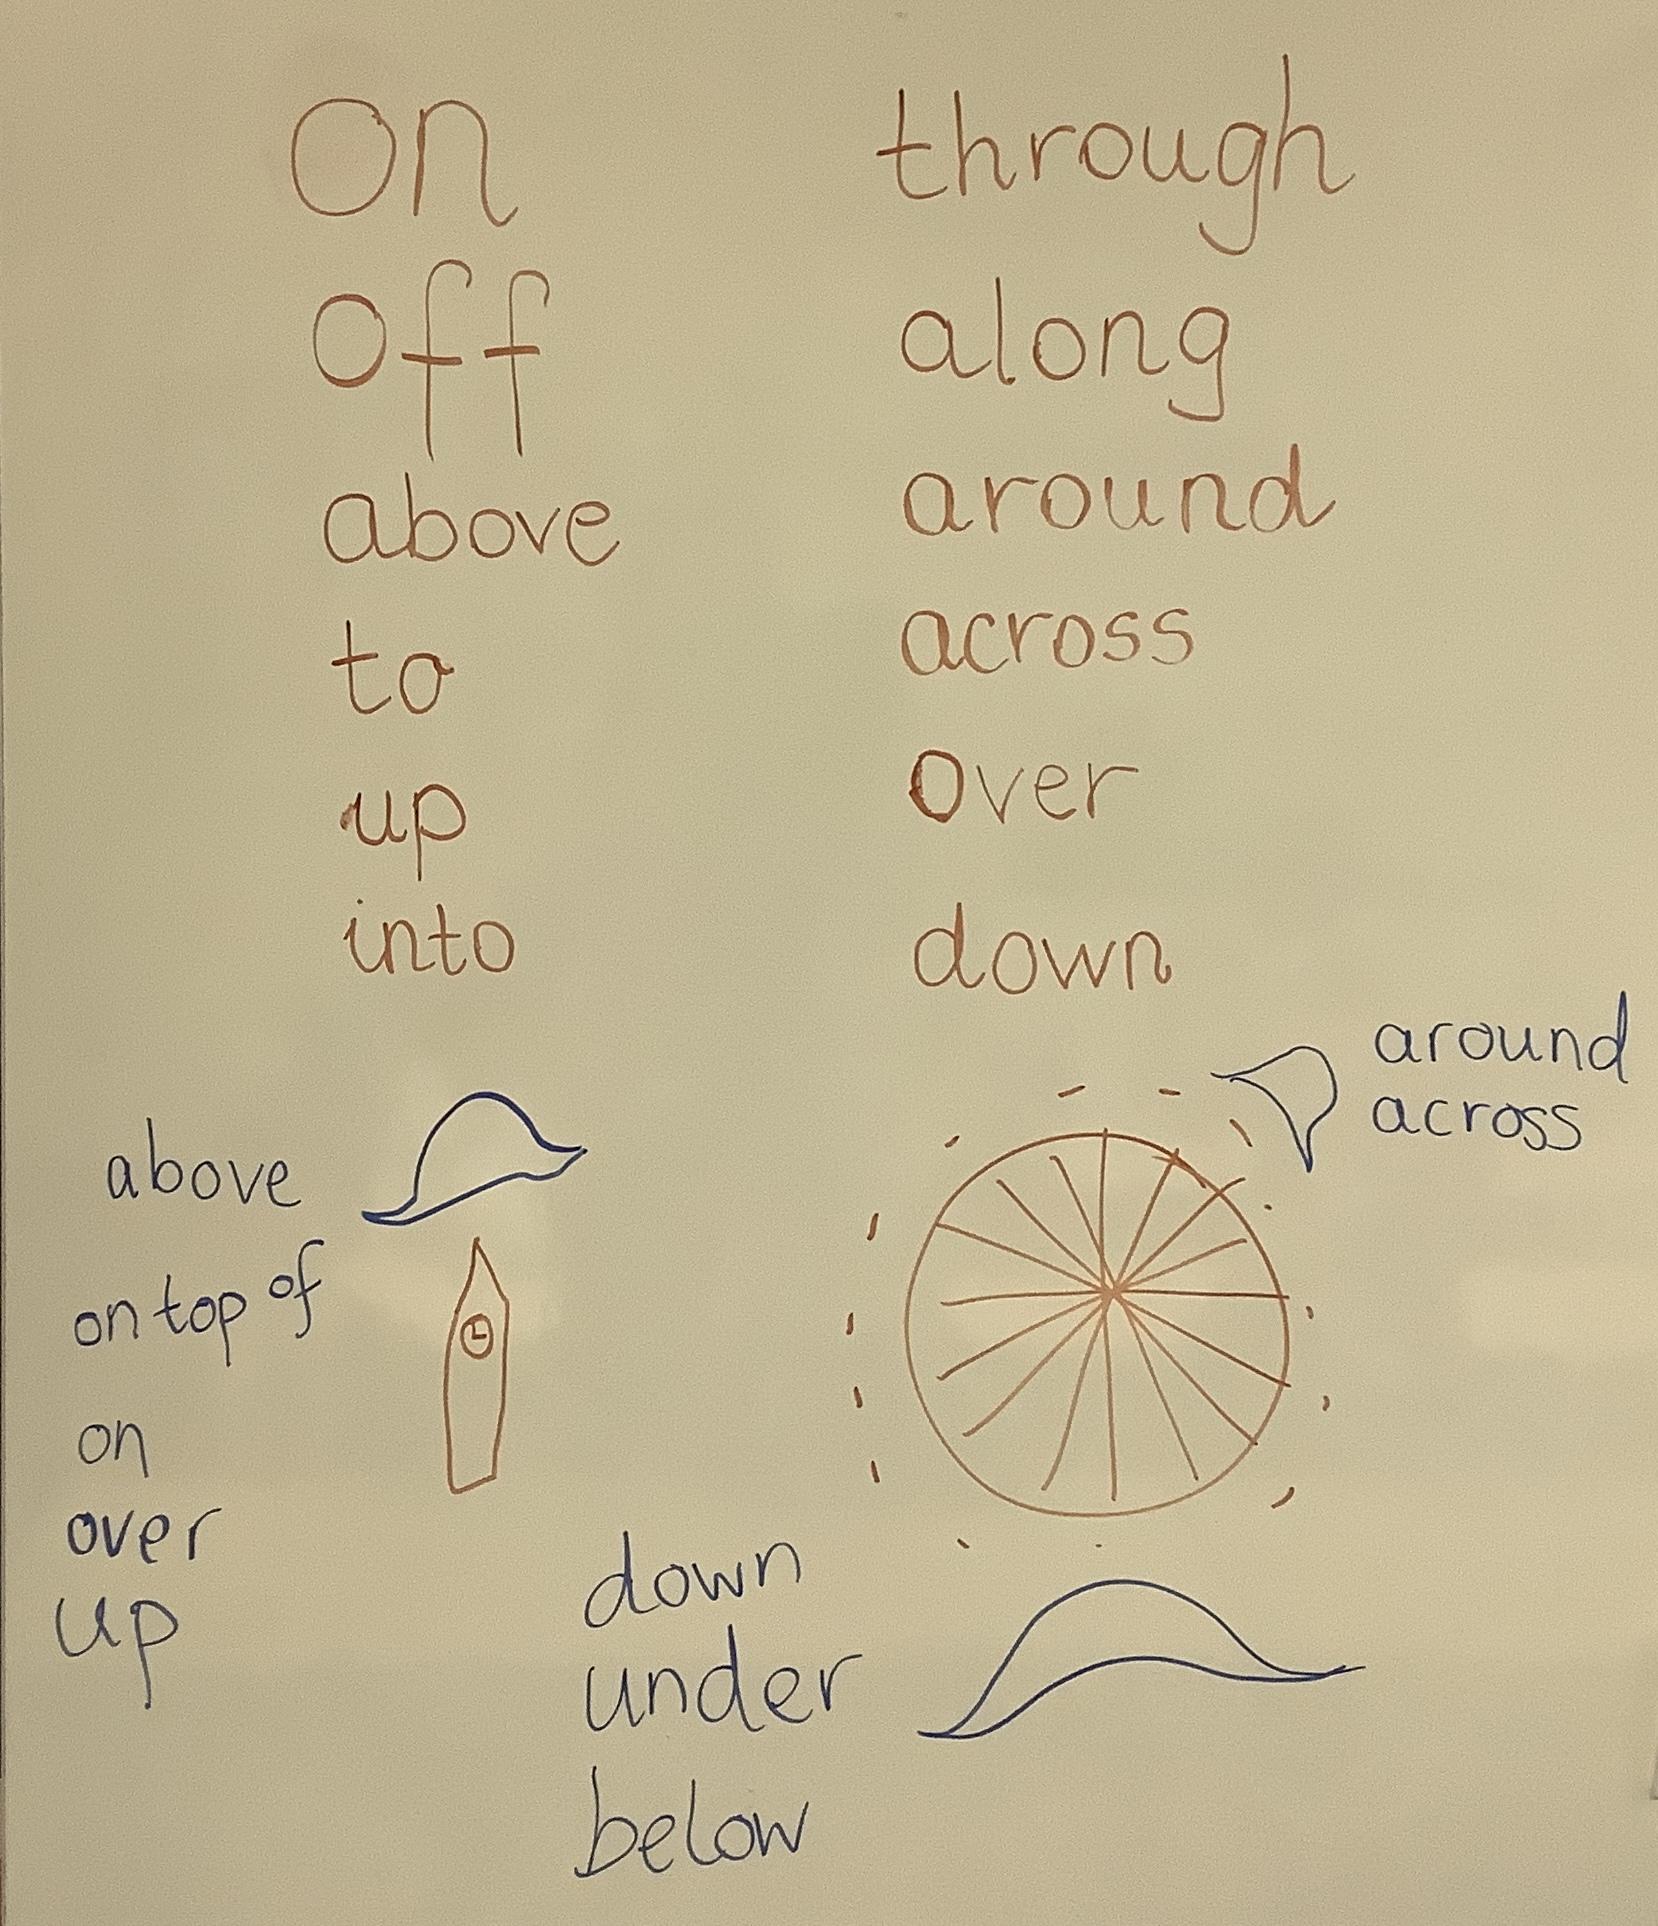 on
off
above
to
up
into
through
along
around
across
over
down
above
on top of
on
over
up
around
across
down
under
below